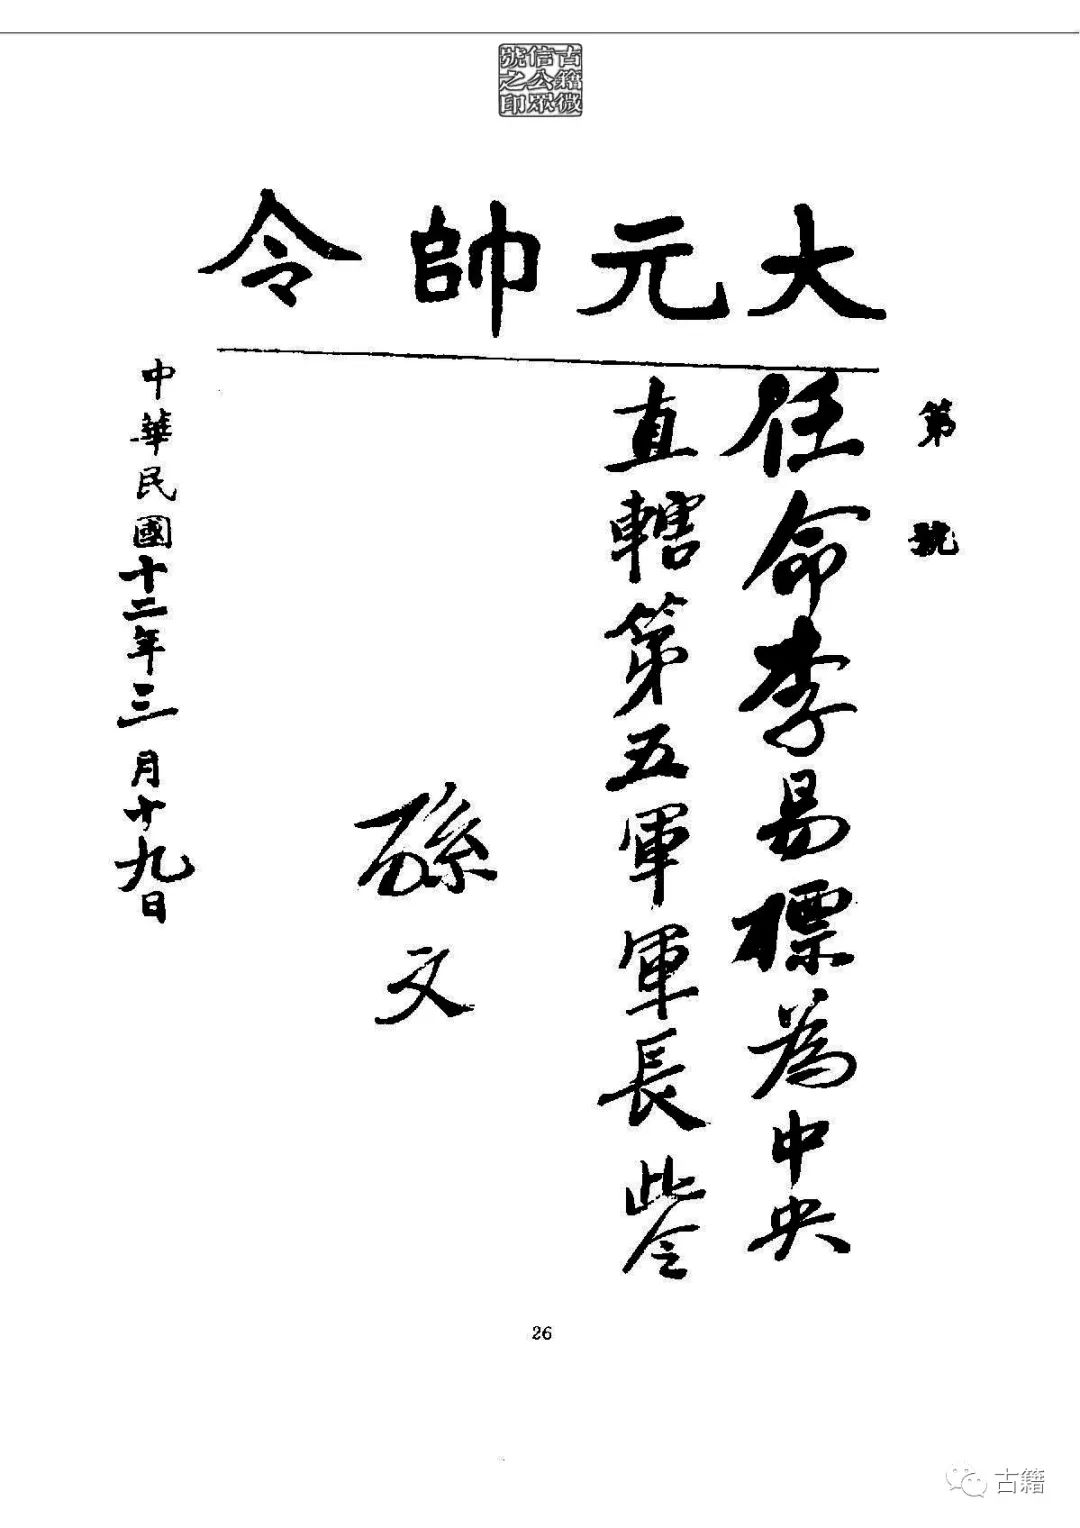 古籍微
信公眾
號之印
大元帥令
第 號
任命李易標為中央
直轄第五軍軍長此令
孫文
中華民國十二年三月十九日
26
古籍